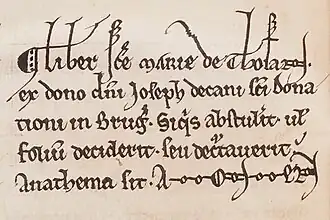 Liber sc̄e marie de Thosan.
ex dono dn̄i Joseph decani sc̄i Dona
tioni in Brug̓. Siq̓s abstulit. ul̓
foliū deciderit. seu dec̓taverit
Anathema sit. A